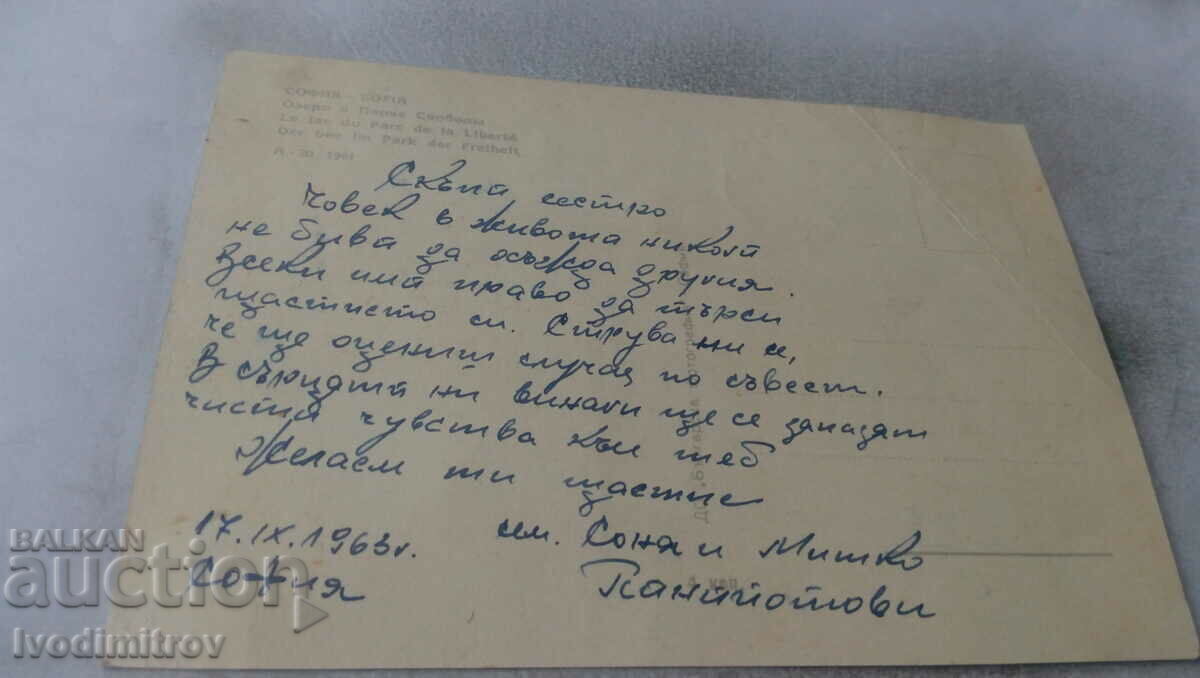 СОФИЯ - SOFIA
Le lac du Parc de la Liberté
Der See im Park der Freiheit
А - 30, 1961
Скъпа сестро
Човек в живота никога
не бива да осъжда другия.
Всеки има право да търси
щастието си. Струва ни се,
че ще оцениш случая по съвест.
В сърцата ни винаги ще се запазят
чисти чувства към теб
Желаем ти щастие
17.IX.1963г.
сем. Сона и Митко
София
Панайотови
4 кол.
BALKAN
auction
Ivodimitrov